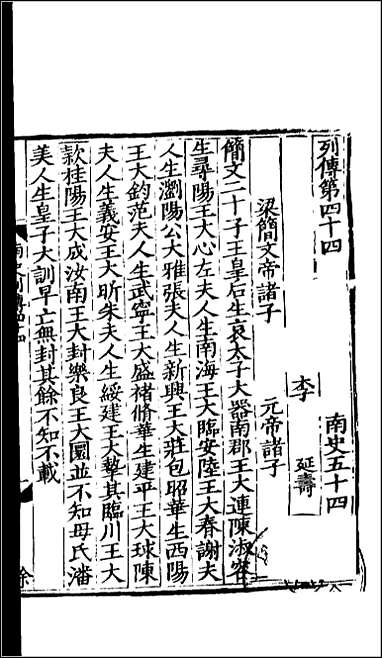 列傳第四十四　南史五十四
李　延壽
梁簡文帝諸子　元帝諸子
簡文二十子王皇后生哀太子大器南郡王大連陳淑容
生尋陽王大心左夫人生南海王大臨安陸王大春謝夫
人生瀏陽公大雅張夫人生新興王大莊包昭華生西陽
王大鈞范夫人生武寧王大威褚脩華生建平王大球陳
夫人生義安王大昕朱夫人生綏建王大摯其臨川王大
款桂陽王大成汝南王大封樂良王大圜並不知母氏潘
美人生皇子大訓早亡無封其餘不知不載